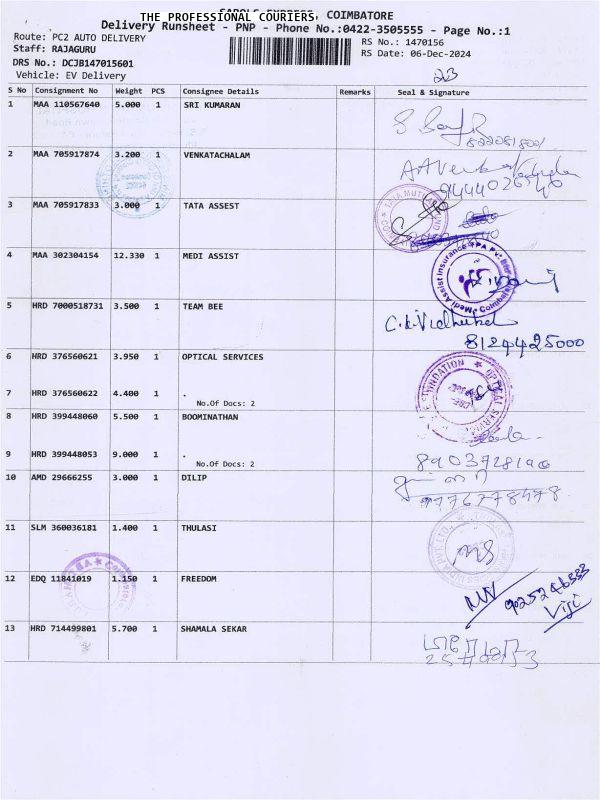 THE PROFESSIONAL COURIERS, COIMBATORE
Delivery Runsheet - PNP - Phone No.:0422-3505555 - Page No.:1
Route: PC2 AUTO DELIVERY
RS No.: 1470156
Staff: RAJAGURU
RS Date: 06-Dec-2024
DRS No.: DCJB147015601
Vehicle: EV Delivery
23
S No Consignment No Weight PCS Consignee Details Remarks Seal & Signature
1 MAA 110567640 5.000 1 SRI KUMARAN
2 MAA 705917874 3.200 1 VENKATACHALAM
3 MAA 705917833 3.000 1 TATA ASSEST
4 MAA 302304154 12.330 1 MEDI ASSIST
5 HRD 7000518731 3.500 1 TEAM BEE
8124425000
6 HRD 376560621 3.950 1 OPTICAL SERVICES
7 HRD 376560622 4.400 1 .
No.Of Docs: 2
8 HRD 399448060 5.500 1 BOOMINATHAN
9 HRD 399448053 9.000 1 .
No.Of Docs: 2
8903728190
10 AMD 29666255 3.000 1 DILIP
11 SLM 360036181 1.400 1 THULASI
12 EDQ 11841019 1.150 1 FREEDOM
Viji
13 HRD 714499801 5.700 1 SHAMALA SEKAR